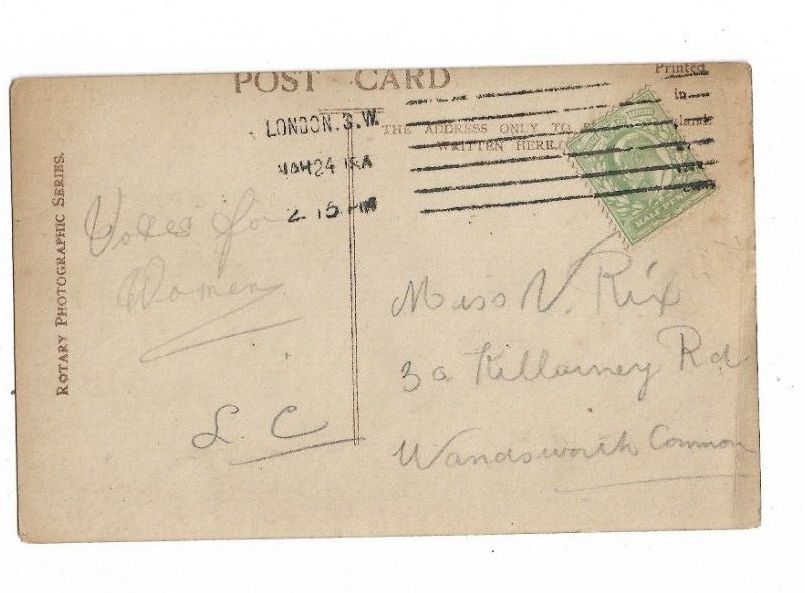 POST CARD
Printed
in
THE ADDRESS ONLY TO
WRITTEN HERE.
ROTARY PHOTOGRAPHIC SERIES.
LONDON. S.W.
24
2. 15 PM
HALF
Votes for
Women
L. C
Miss V. Rix
3a Killarney Rd
Wandsworth Common